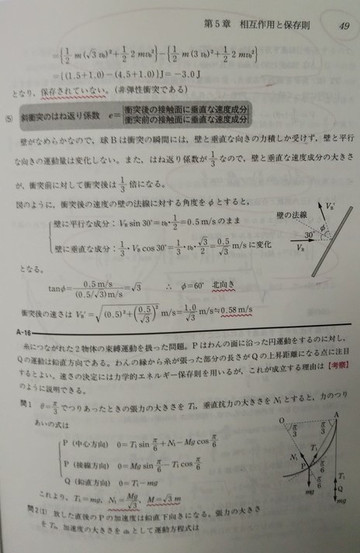 第5章 相互作用と保存則 49
={1/2 m(√3 v₀)²+1/2・2mv₀²}−{1/2 m(3v₀)²+1/2・2mv₀²}
={(1.5+1.0)−(4.5+1.0)}J=−3.0J
となり,保存されていない。(非弾性衝突である)
⑤ 斜衝突のはね返り係数 e=衝突後の接触面に垂直な速度成分/衝突前の接触面に垂直な速度成分
壁がなめらかなので,球Bは衝突の瞬間には,壁と垂直な向きの力積しか受けず,壁と平行
な向きの運動量は変化しない。また,はね返り係数が1/3なので,壁と垂直な速度成分の大きさ
が,衝突前に対して衝突後は1/3倍になる。
図のように,衝突後の速度の壁の法線に対する角度をφとすると,
壁に平行な成分:V_B sin30°=v₀・1/2=0.5m/sのまま
壁に垂直な成分:1/3・V_B cos30°=1/3・v₀・√3/2=0.5/√3 m/sに変化
壁の法線
V_B'
30°
φ
V_B
となる。
tanφ=0.5m/s/(0.5/√3)m/s=√3 ∴ φ=60° 北向き
衝突後の速さはV_B'=√((0.5)²+(0.5/√3)²) m/s=1.0/√3 m/s≒0.58m/s
A-16
糸につながれた2物体の束縛運動を扱った問題。Pはわんの面に沿った円運動をするのに対し,
Qの運動は鉛直方向である。わんの縁から糸が張った部分の長さがQの上昇距離になる点に注目
するとよい。速さの決定には力学的エネルギー保存則を用いるが,これが成立する理由は【考察】
のように説明できる。
問1 θ=π/3でつりあったときの張力の大きさをT₁,垂直抗力の大きさをN₁とすると,力のつり
あいの式は
P(中心方向) 0=T₁sin π/6+N₁−Mg cos π/6
P(接線方向) 0=Mg sin π/6−T₁cos π/6
Q(鉛直方向) 0=T₁−mg
これより,T₁=mg, N₁=Mg/√3, M=√3 m
O
A
π/3
π/3
N₁
T₁
P
π/6
mg
T₁
Q
mg
問2(1) 放した直後のPの加速度は鉛直下向きになる。張力の大きさ